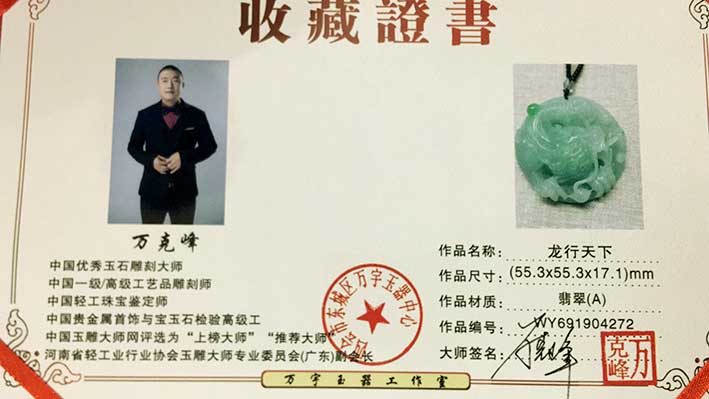 收藏證書
万克峰
中国优秀玉石雕刻大师
中国一级/高级工艺品雕刻师
中国轻工珠宝鉴定师
中国贵金属首饰与宝玉石检验高级工
中国玉雕大师网评选为“上榜大师”“推荐大师”
河南省轻工业行业协会玉雕大师专业委员会(广东)副会长
会市东城区万宇玉器中心
作品名称: 龙行天下
作品尺寸: (55.3x55.3x17.1)mm
作品材质: 翡翠(A)
作品编号: WY691904272
大师签名:
万克峰
万宇玉器工作室